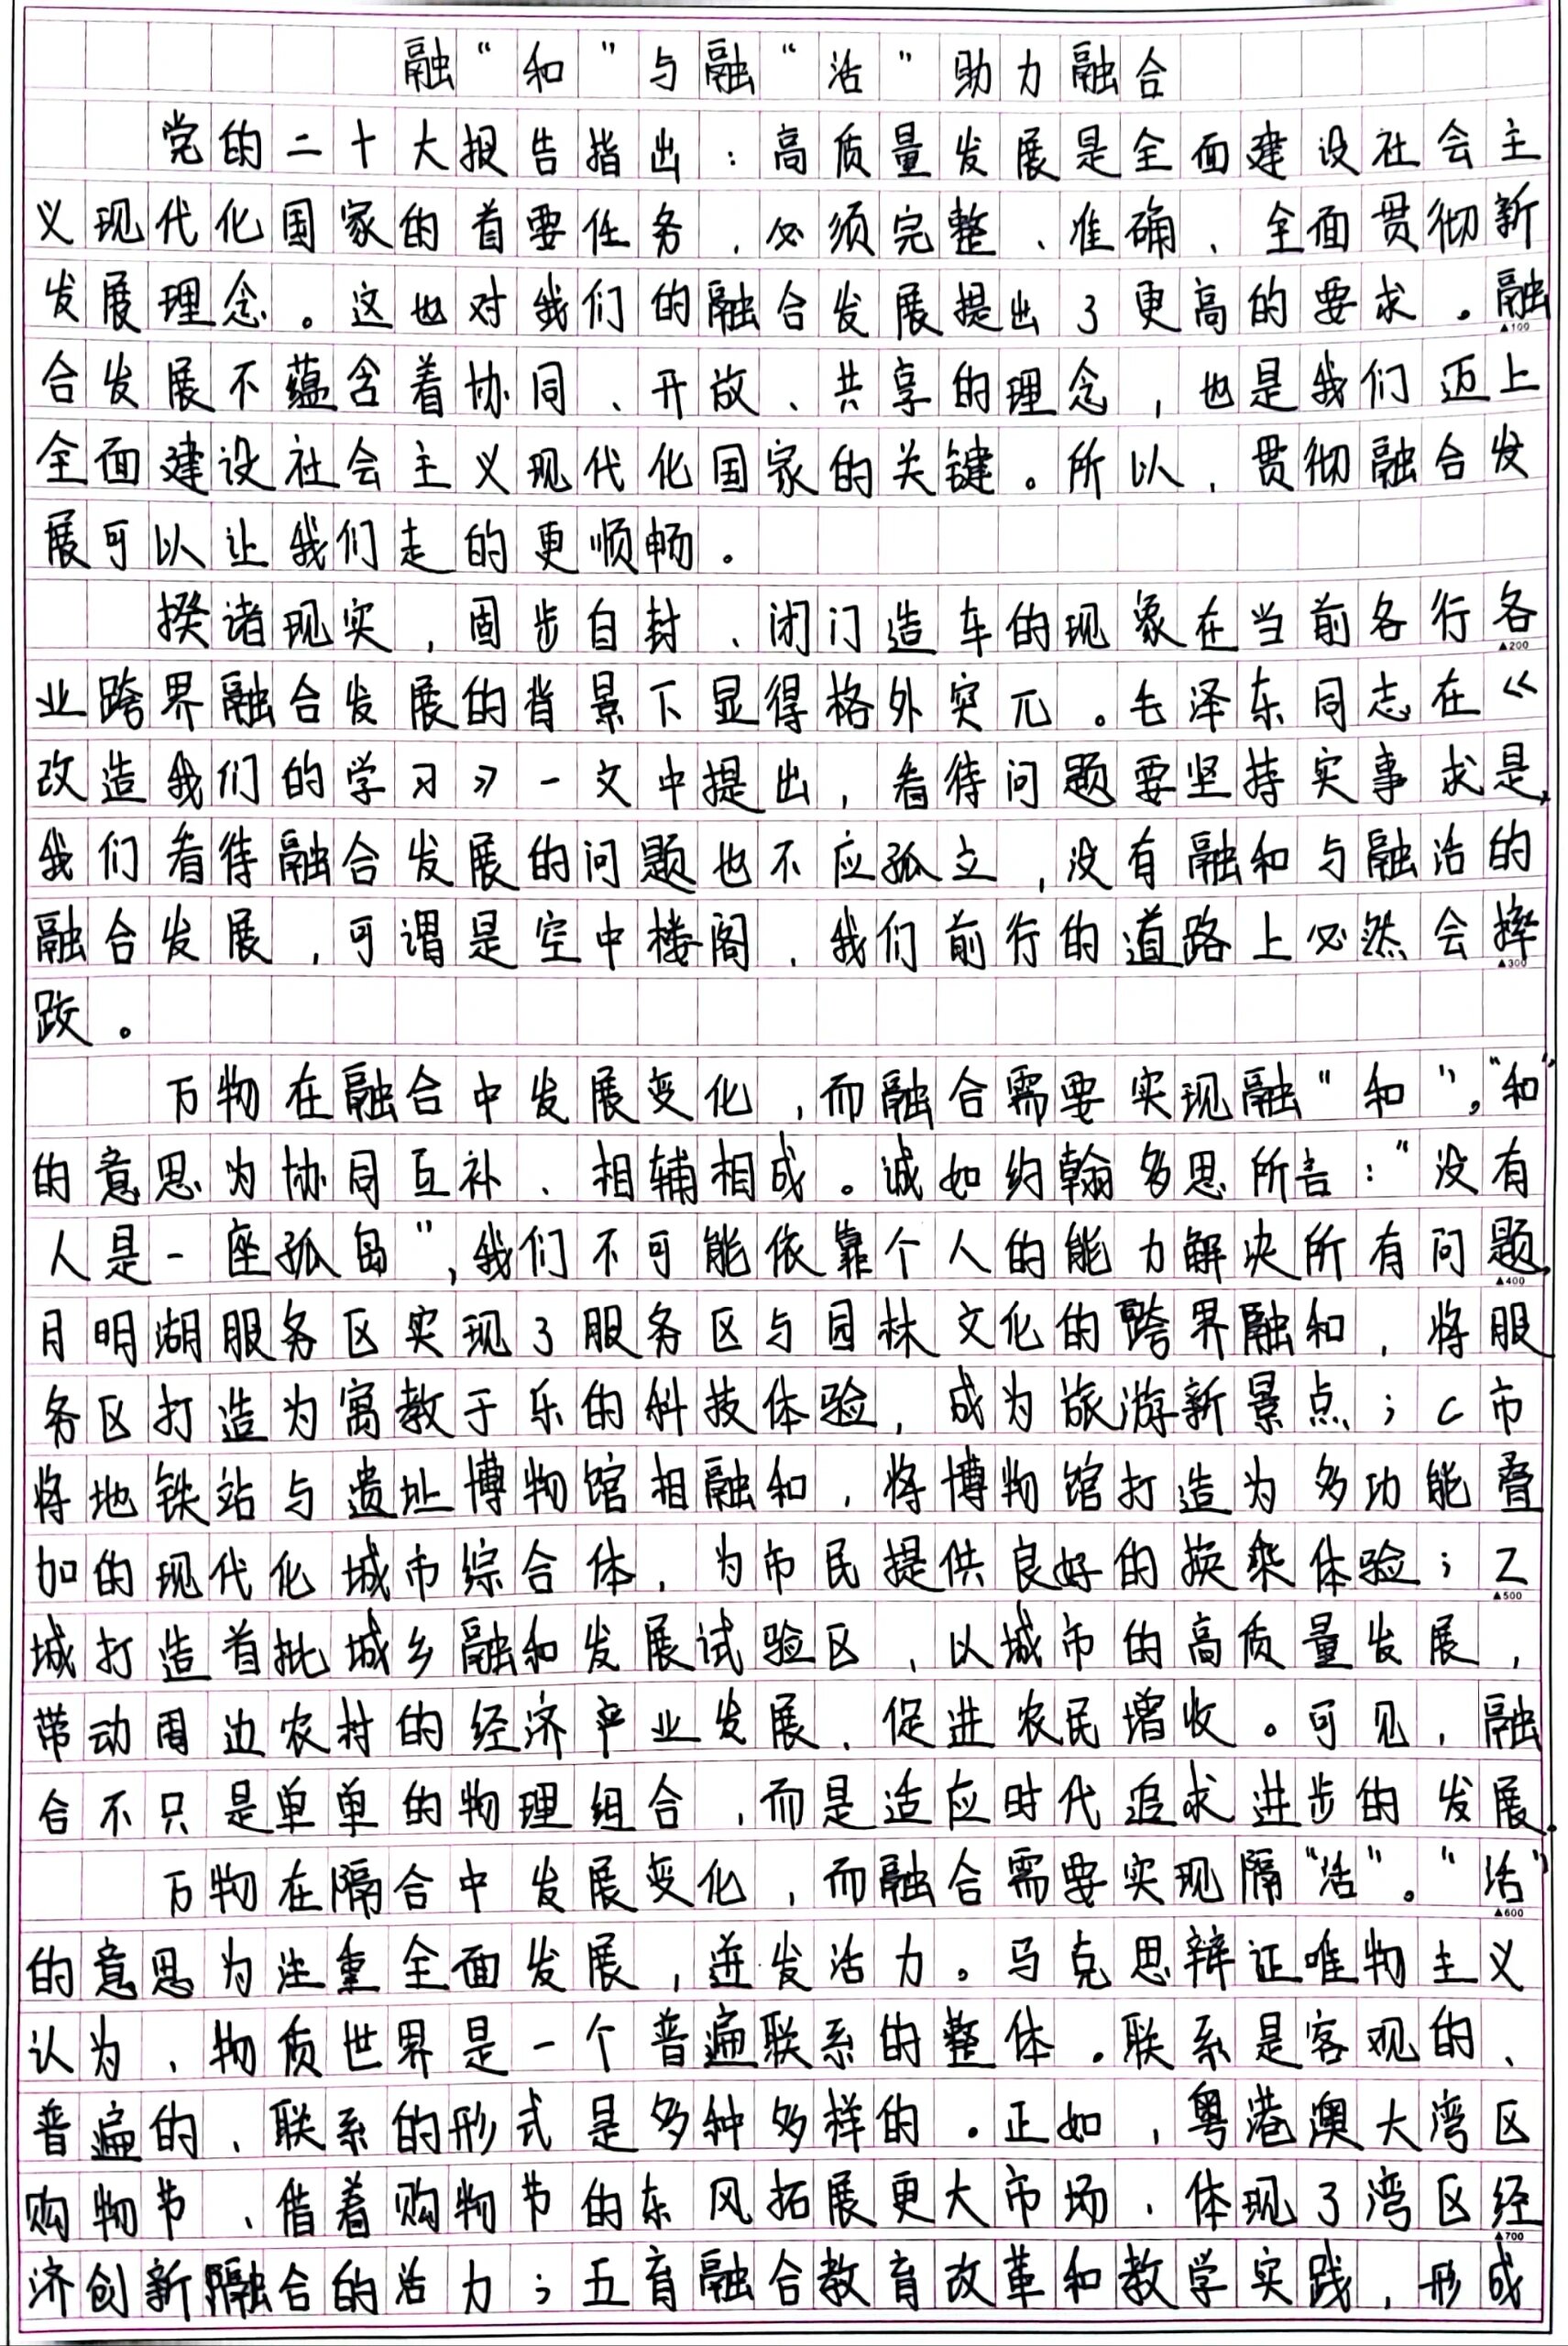 融“和”与融“活”助力融合
党的二十大报告指出：高质量发展是全面建设社会主
义现代化国家的首要任务，必须完整、准确、全面贯彻新
发展理念。这也对我们的融合发展提出了更高的要求。融
▲100
合发展不蕴含着协同、开放、共享的理念，也是我们迈上
全面建设社会主义现代化国家的关键。所以，贯彻融合发
展可以让我们走的更顺畅。
揆诸现实，固步自封、闭门造车的现象在当前各行各
▲200
业跨界融合发展的背景下显得格外突兀。毛泽东同志在《
改造我们的学习》一文中提出，看待问题要坚持实事求是，
我们看待融合发展的问题也不应孤立，没有融和与融活的
融合发展，可谓是空中楼阁，我们前行的道路上必然会摔
▲300
跤。
万物在融合中发展变化，而融合需要实现融“和”。“和”
的意思为协同互补、相辅相成。诚如约翰多恩所言：“没有
人是一座孤岛”，我们不可能依靠个人的能力解决所有问题，
▲400
月明湖服务区实现了服务区与园林文化的跨界融和，将服
务区打造为寓教于乐的科技体验，成为旅游新景点；C市
将地铁站与遗址博物馆相融和，将博物馆打造为多功能叠
加的现代化城市综合体，为市民提供良好的换乘体验；Z
▲500
城打造首批城乡融和发展试验区，以城市的高质量发展，
带动周边农村的经济产业发展，促进农民增收。可见，融
合不只是单单的物理组合，而是适应时代追求进步的发展。
万物在隔合中发展变化，而融合需要实现隔“活”。“活”
▲600
的意思为注重全面发展，迸发活力。马克思辩证唯物主义
认为，物质世界是一个普遍联系的整体。联系是客观的、
普遍的，联系的形式是多种多样的。正如，粤港澳大湾区
购物节，借着购物节的东风拓展更大市场，体现了湾区经
▲700
济创新融合的活力；五育融合教育改革和教学实践，形成